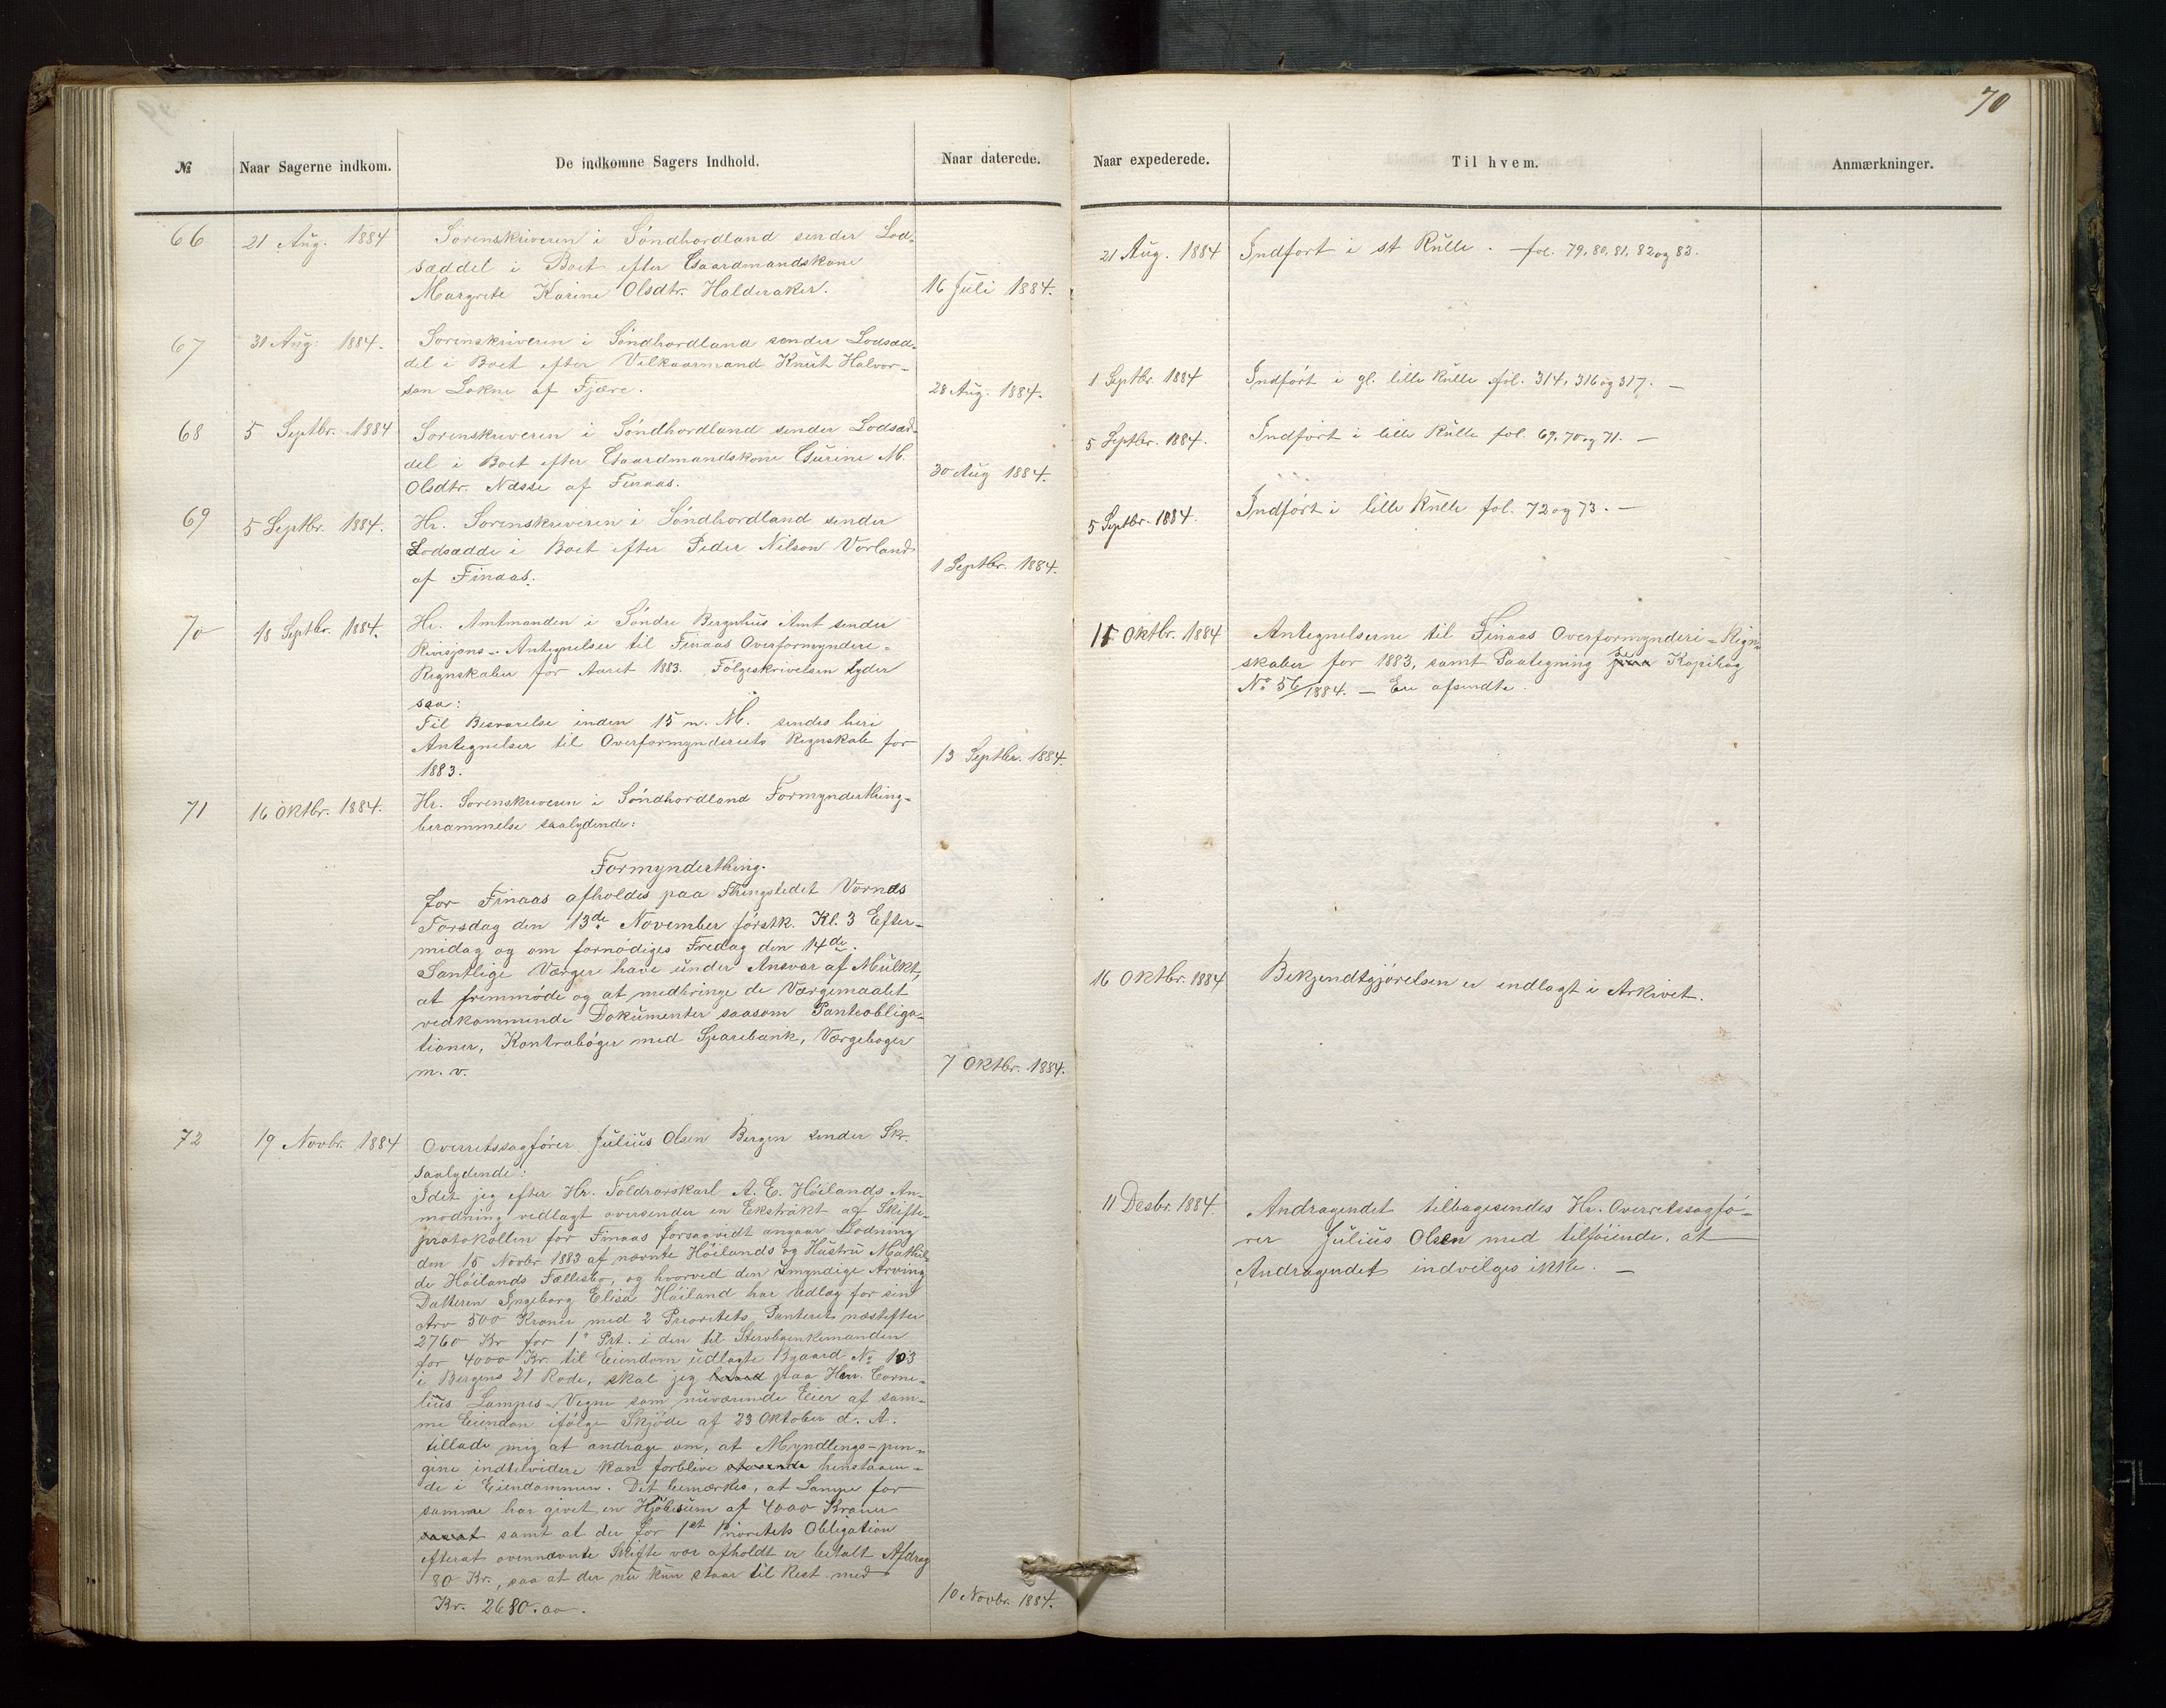 70
№ Naar Sagerne indkom. De indkomne Sagers Indhold. Naar daterede. Naar expederede. Til hvem. Anmærkninger.
66 21 Aug. 1884
Sorenskriveren i Söndhordland sender Lod-
sæddel i Boet efter Gaardmandskone
Margrete Karine Olsdtr. Halderaker.
16 Juli 1884.
21 Aug. 1884 Indfört i st Rulle. fol. 79, 80, 81, 82 og 83.
67 31 Aug. 1884.
Sorenskriveren i Söndhordland sender Lodsæd-
del i Boet efter Velkaarmand Knut Halvor-
sen Lokne af Fjære.
28 Aug. 1884.
1 Septbr. 1884 Indfört i gl. lille Rulle fol. 314, 316 og 317. —
68 5 Septbr. 1884
Sorenskriveren i Söndhordland sender Lodsæd-
del i Boet efter Gaardmandskone Gurine M.
Olsdtr. Næsse af Finaas.
30 Aug 1884.
5 Septbr. 1884. Indfört i lille Rulle fol. 69, 70 og 71. —
69 5 Septbr. 1884.
Hr. Sorenskriveren i Söndhordland sender
Lodsædde i Boet efter Peder Nilson Vorland
af Finaas.
1 Septbr. 1884.
5 Septbr. 1884. Indfört i lille Rulle fol. 72 og 73. —
70 18 Septbr. 1884.
Hr. Amtmanden i Söndre Bergenhus Amt sender
Revisjons-Antegnelser til Finaas Overformynderi-
Regnskaber for Aaret 1883. Fölgeskrivelsen lyder
saa:
Til Besvarelse inden 15 n. M. sendes heri
Antegnelser til Overformynderiets Regnskab for
1883.
13 Septbr. 1884.
15 Oktbr. 1884 Antegnelserne til Finaas Overformynderi-Regn-
skaber for 1883, samt Paategning se Kopibog
No 56/1884. — Er afsendte.
71 16 Oktbr. 1884.
Hr. Sorenskriveren i Söndhordland Formynderthing-
berammelse saalydende:
Formynderthing.
for Finaas afholdes paa Thingstedet Vornæs
Torsdag den 13de November förstk. Kl. 3 Efter-
midag og om fornödiges Fredag den 14de.
Samtlige Værger have under Ansvar af Mulkt,
at fremmöde og at medbringe de Værgemaalet
vedkommende Dokumenter saasom Panteobliga-
tioner, Kontraböger med Sparebank, Værgeboger
m. v.
7 Oktbr. 1884.
16 Oktbr. 1884 Bekjendtgjörelsen er indlagt i Arkivet.
72 19 Novbr. 1884
Overretssagförer Julius Olsen Bergen sender Skr.
saalydende:
Idet jeg efter Hr. Toldrorskarl A. E. Höilands An-
modning vedlagt oversender en Ekstrakt af Skifte-
protokollen for Finaas forsaavidt angaar Lodning
den 15 Novbr 1883 af nævnte Höilands og Hustru Mathil-
de Höilands Fællesbo, og hvorved den umyndige Arving
Datteren Ingeborg Elisa Höiland har Udlag for sin
Arv 500 Kroner med 2 Prioritets Panteret næstefter
2760 Kr for 1' Prt. i den til Stervboenkemanden
for 4000 Kr. til Eiendom udlagte Bgaard No 103
i Bergens 21 Rode, skal jeg paa Herr. Corne-
lius Lampes Vegne som nuværende Eier af sam-
me Eiendom ifölge Skjöde af 23 Oktober d. A.
tillade mig at andrage om, at Myndlings-pen-
gene indtilvidere kan forblive henstaaen-
de i Eiendommen. Det bemærkes, at Lampe for
samme har givet en Kjöbesum af 4000 Kroner
samt at der for 1st Prioritets Obligation
efterat ovennævnte Skifte var afholdt er betalt Afdrag
80 Kr., saa at der nu kun staar til Rest med
Kr. 2680.00.
10 Novbr. 1884.
11 Desbr. 1884. Andragendet tilbagesendes Hr. Overretssagfö-
rer Julius Olsen med tilföiende, at
Andragendet indvilges ikke. —